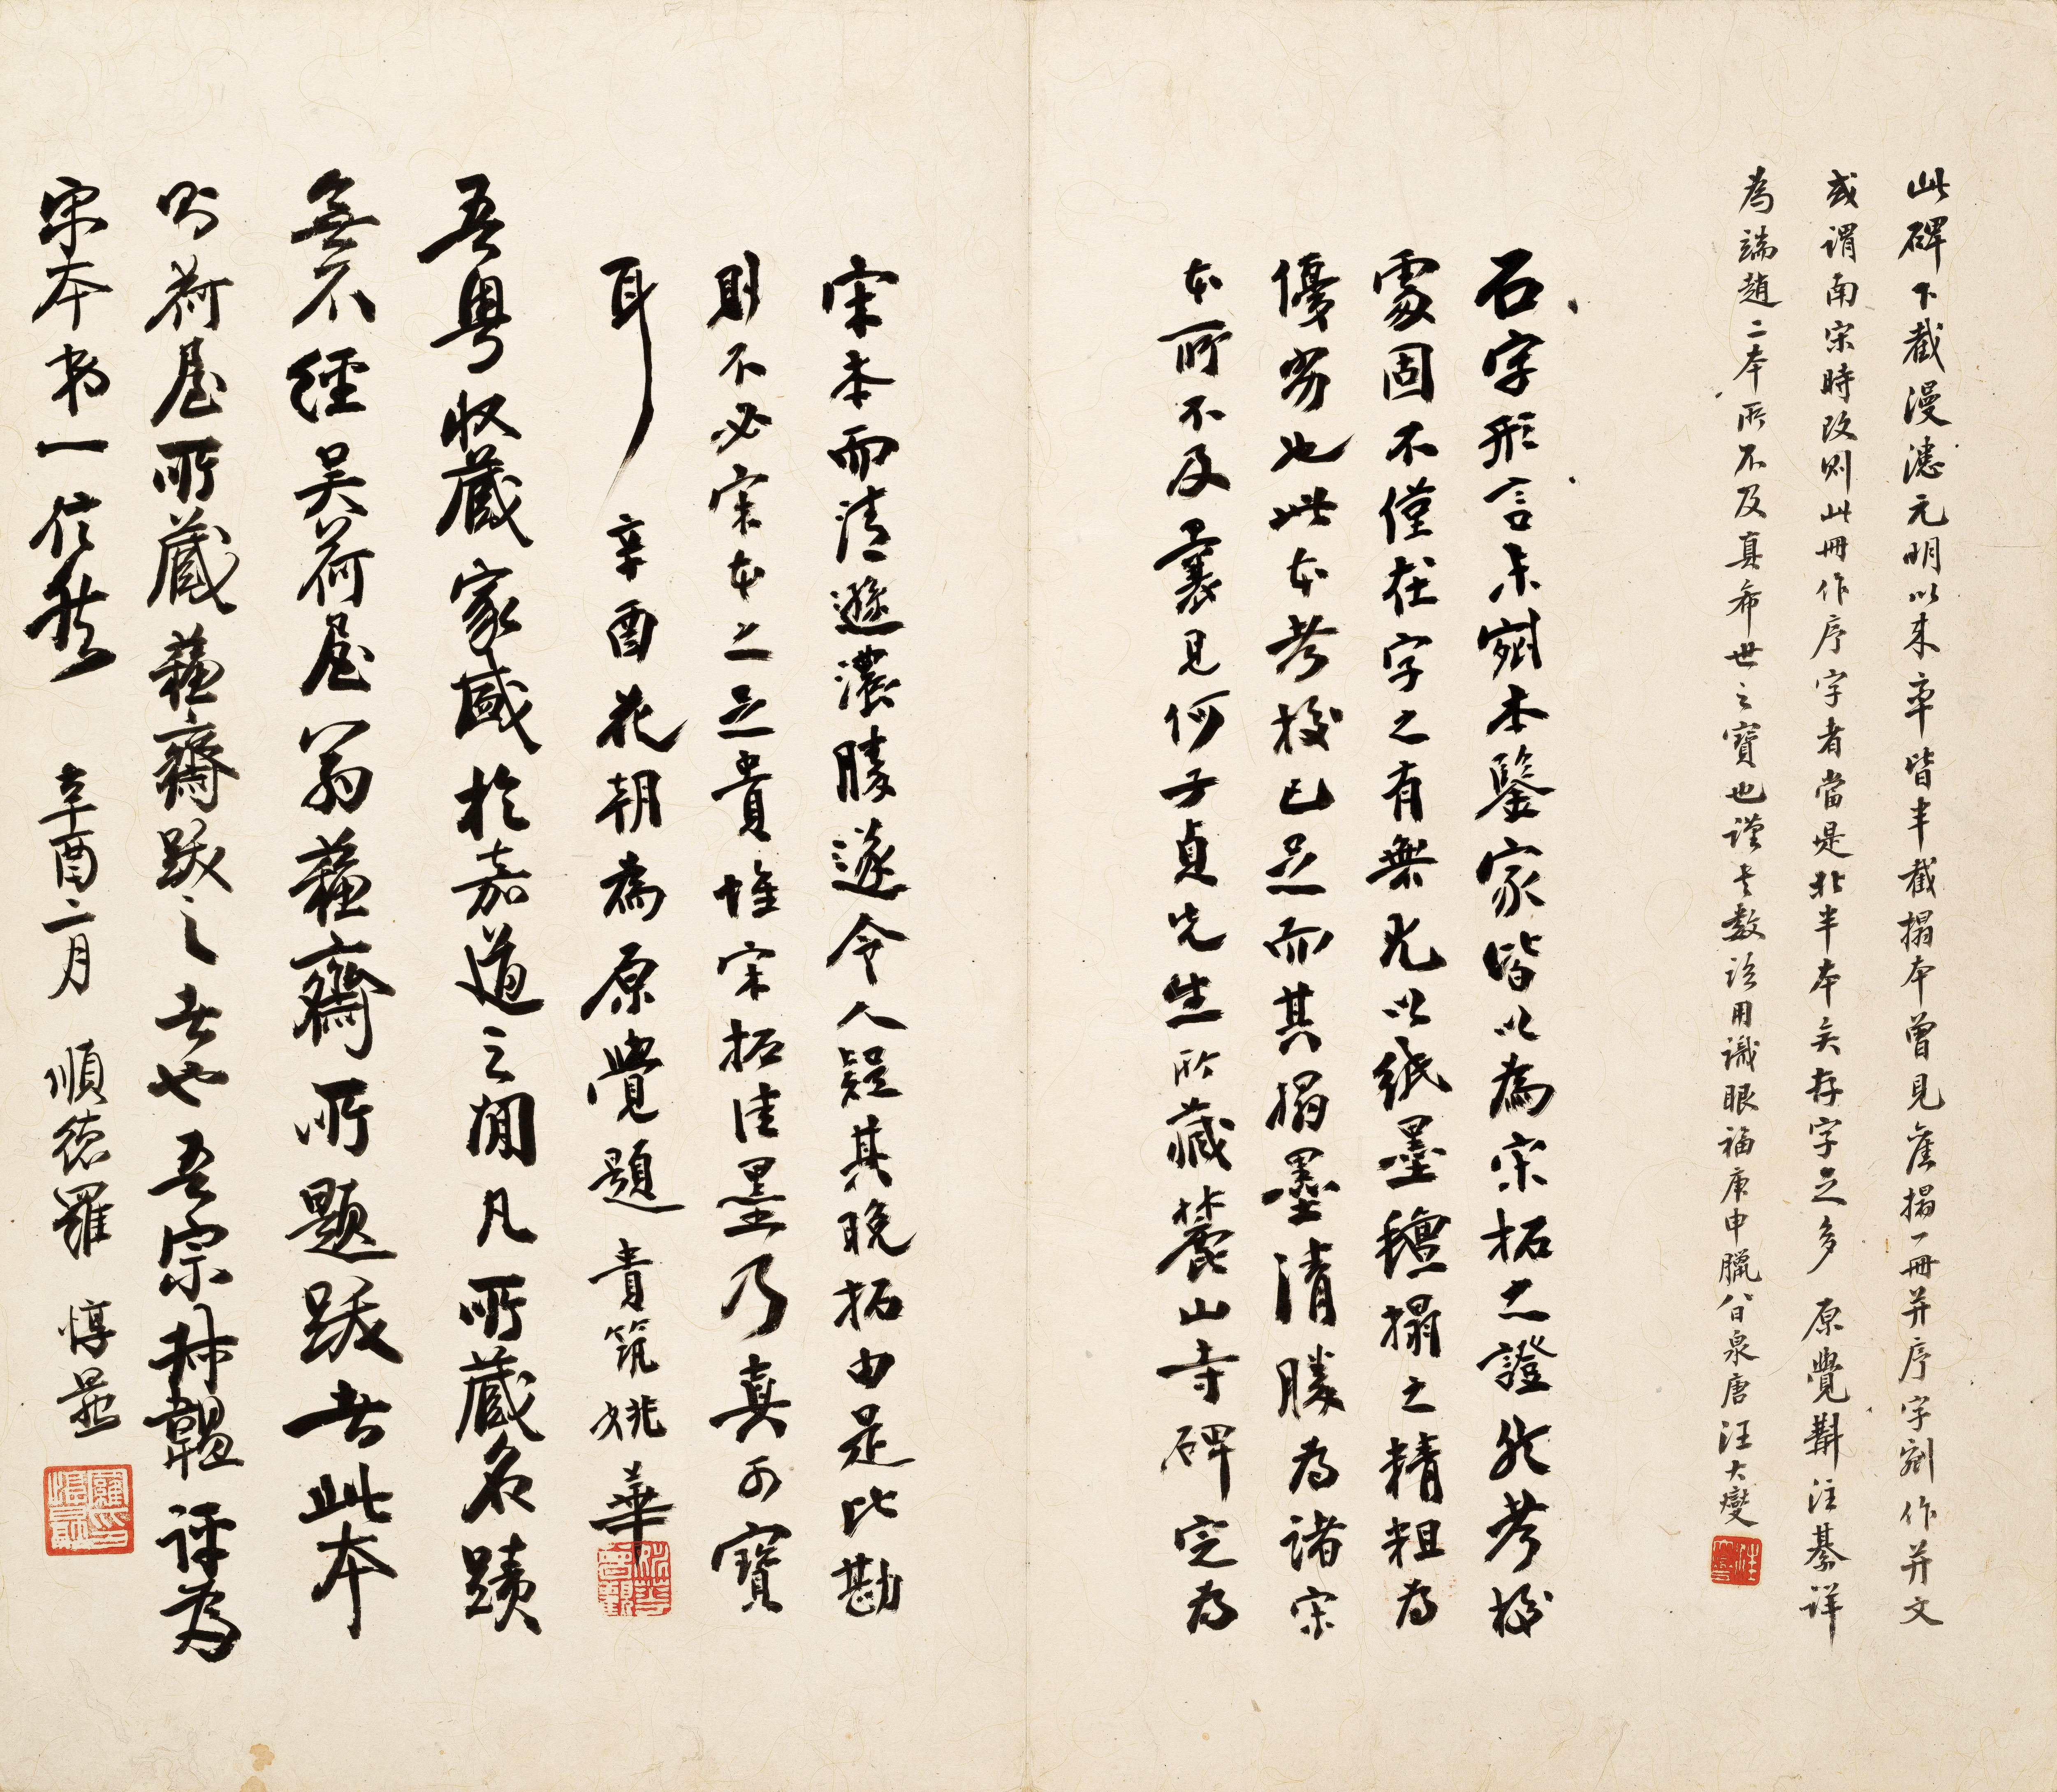 此碑下截漫漶元明以来率皆半截搨本曾見舊搨一冊并序字剜作并文
或謂南宋時改則此冊作序字者當是北半本矣存字之多原覺斠注綦詳
為端趙二本所不及真希世之寶也謹志數語用識眼福庚申臘八日泉唐汪大燮
石字形言未剜本鑒家皆以為宋拓之證然考校
處固不僅在字之有無尤以紙墨氊搨之精粗為
優劣也此本考校已足而其搨墨清勝為諸宋
本所不及曩見何子貞先生所藏麓山寺碑定為
宋本而清遜濃勝遂令人疑其晚拓由是比勘
則不必宋本之足貴惟宋拓佳墨乃真可寶
耳 辛酉花朝為原覺題 貴筑姚華
吾粵收藏家盛於嘉道之間凡所藏名蹟
無不經吳荷屋翁蘇齋所題跋者此本
則荷屋所藏蘇齋跋之者也吾宗叔韞評為
宋本弟一信然 辛酉二月 順德羅惇㬊